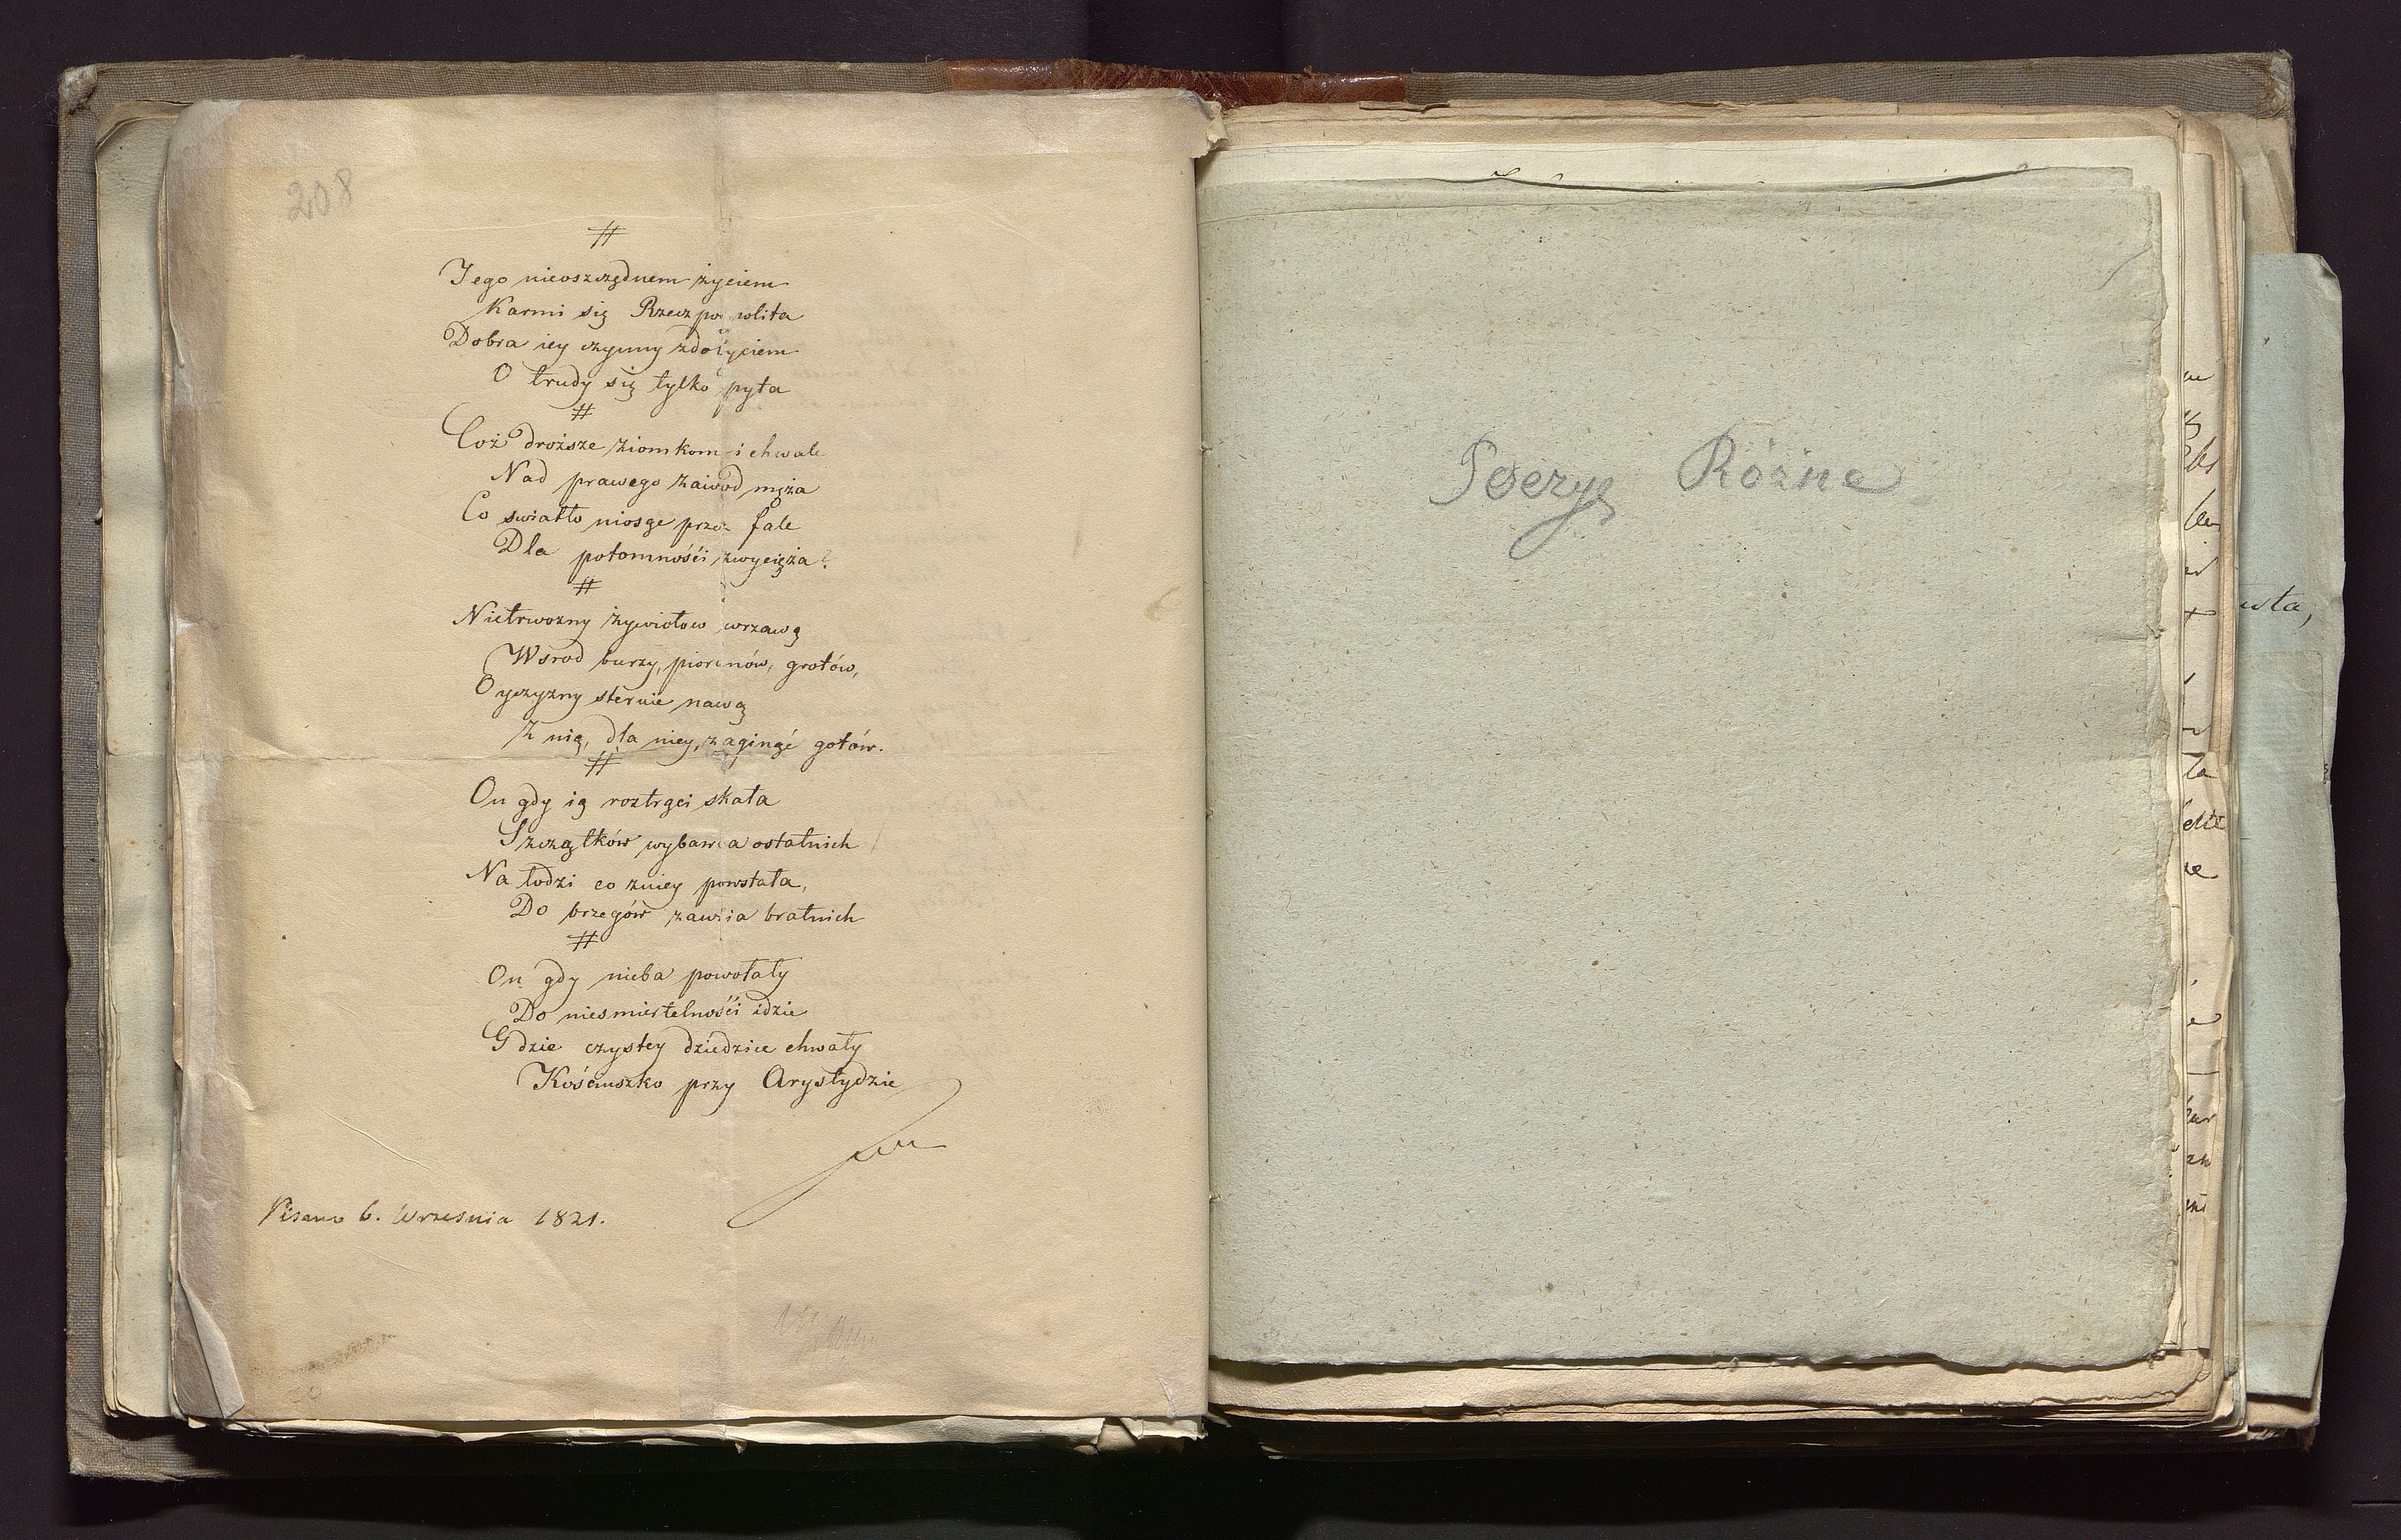 208
#
Jego nieoszczędnem życiem
Karmi się Rzeczpospolita
Dobra iey czynny zdobyciem
O trudy się tylko pyta
#
Coż droższe ziomkom i chwale
Nad prawego zawod męża
Co swiatło niosąc przez fale
Dla potomnośći zwycięża?
#
Nietrwożny żywiołow wrzawą
Wsrod burzy, piorunów, grotów,
Oyczyzny steruie nawą
Z nią, dla niey, zaginąć gotów.
#
On gdy ią roztrąci skała
Szczątków wybawca ostatnich
Na łodzi co zniey powstała,
Do brzegów zawiia bratnich
#
On gdy nieba powołały
Do niesmiertelnośći idzie
Gdzie czystey dziedzice chwały
Kościuszko przy Arystydzie
Pisano 6. Września 1821.
Poezye Różne
wła,